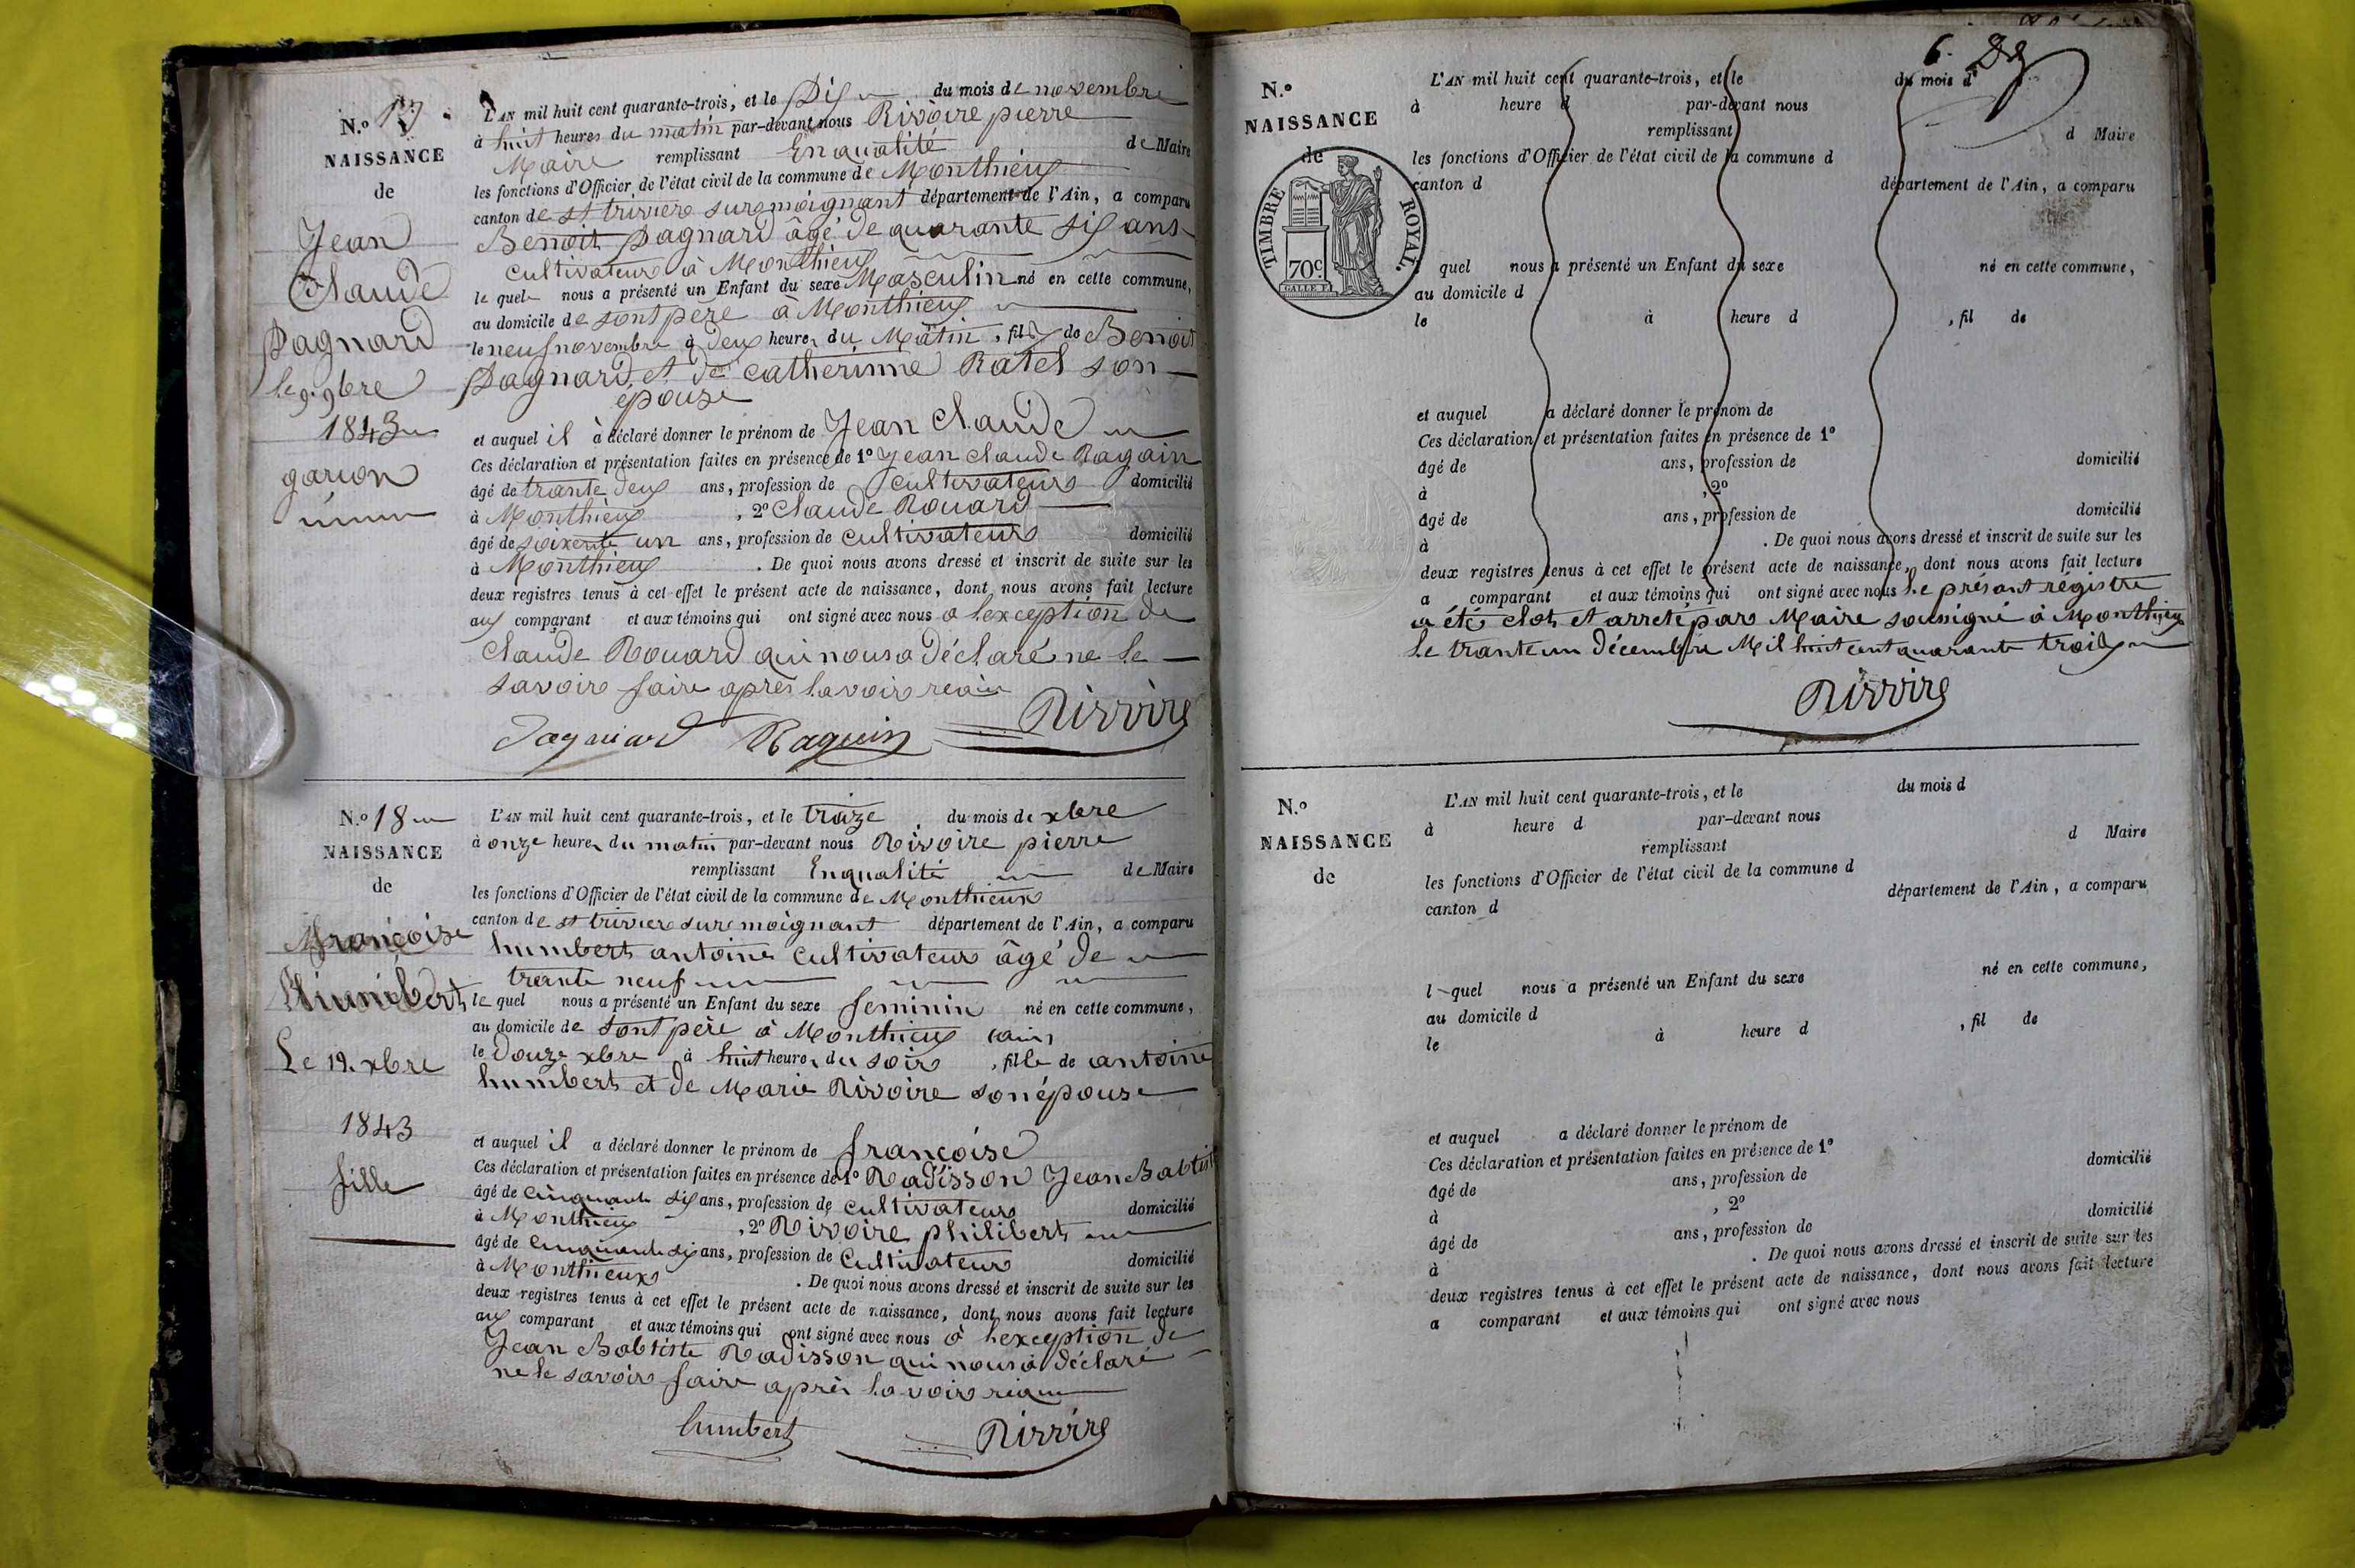 N.º 17
NAISSANCE
de
Jean
Claude
Pagnard
le 9. 9bre
1843
garçon
L'AN mil huit cent quarante-trois, et le Dix du mois de novembre
à huit heures du matin par-devant nous Rivoire pierre
Maire remplissant En qualité de Maire
les fonctions d'Officier de l'état civil de la commune de Monthieux
canton de st trivier sur moignant département de l'Ain, a comparu
Benoit pagnard âgé de quarante six ans
cultivateur à Monthieux
le quel nous a présenté un Enfant du sexe Masculin né en cette commune,
au domicile de sont père à Monthieux
le neuf novembre à deux heures du Matin, fils de Benoit
pagnard et de catherinne Ratel son
épouse
et auquel il à déclaré donner le prénom de Jean Claude
Ces déclaration et présentation faites en présence de 1º Jean claude Ragain
âgé de trante deux ans, profession de cultivateur domicilié
à Monthieux, 2º Claude Rouard
âgé de soixente un ans, profession de cultivateur domicilié
à Monthieux. De quoi nous avons dressé et inscrit de suite sur les
deux registres tenus à cet effet le présent acte de naissance, dont nous avons fait lecture
aux comparant et aux témoins qui ont signé avec nous a lexception de
Claude Rouard qui nous a déclaré ne le
savoir faire après lavoir
Raguin Rivoire
N.º 18
NAISSANCE
de
françoise
Humbert
Le 12. xbre
1843
fille
L'AN mil huit cent quarante-trois, et le traize du mois de xbre
à onze heures du matin par-devant nous Rivoire pierre
remplissant En qualité de Maire
les fonctions d'Officier de l'état civil de la commune de Monthieux
canton de st trivier sur moignant département de l'Ain, a comparu
humbert antoine cultivateur âgé de
trante neuf
le quel nous a présenté un Enfant du sexe feminin né en cette commune,
au domicile de sont père à Monthieux
le douze xbre à huit heures du soir, fille de antoine
humbert et de Marie Rivoire son épouse
et auquel il a déclaré donner le prénom de françoise
Ces déclaration et présentation faites en présence de 1º Radisson Jean Babtist
âgé de Cinquante six ans, profession de cultivateur domicilié
à Monthieux, 2º Rivoire philibert
âgé de Cinquante six ans, profession de Cultivateur domicilié
à Monthieux. De quoi nous avons dressé et inscrit de suite sur les
deux registres tenus à cet effet le présent acte de naissance, dont nous avons fait lecture
aux comparant et aux témoins qui ont signé avec nous à lexception de
Jean Babtiste Radisson qui nous à déclaré
ne le savoir faire après lavoir
humbert Rivoire
6.
N.º
NAISSANCE
de
TIMBRE ROYAL.
70c
L'AN mil huit cent quarante-trois, et le du mois d
à heure d par-devant nous
remplissant d Maire
les fonctions d'Officier de l'état civil de la commune d
canton d département de l'Ain, a comparu
quel nous a présenté un Enfant du sexe né en cette commune,
au domicile d
le à heure d, fil de
et auquel a déclaré donner le prénom de
Ces déclaration et présentation faites en présence de 1º
âgé de ans, profession de domicilié
à, 2º
âgé de ans, profession de domicilié
à. De quoi nous avons dressé et inscrit de suite sur les
deux registres tenus à cet effet le présent acte de naissance, dont nous avons fait lecture
a comparant et aux témoins qui ont signé avec nous Le présant régistre
a été clos et arreté par Maire sousigné à Monthieux
Le trante un décembre Mil huit cent quarante trois
Rivoire
N.º
NAISSANCE
de
L'AN mil huit cent quarante-trois, et le du mois d
à heure d par-devant nous
remplissant d Maire
les fonctions d'Officier de l'état civil de la commune d
canton d département de l'Ain, a comparu
l quel nous a présenté un Enfant du sexe né en cette commune,
au domicile d
le à heure d, fil de
et auquel a déclaré donner le prénom de
Ces déclaration et présentation faites en présence de 1º
âgé de ans, profession de domicilié
à, 2º
âgé de ans, profession de domicilié
à. De quoi nous avons dressé et inscrit de suite sur les
deux registres tenus à cet effet le présent acte de naissance, dont nous avons fait lecture
a comparant et aux témoins qui ont signé avec nous